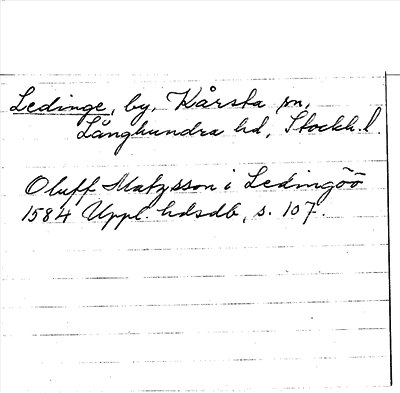 Ledinge, by, Kårsta sn,
Långhundra hd, Stockh. l.
Oluff Matzsson i Ledingöö
1584 Uppl. hdsdb, s. 107.